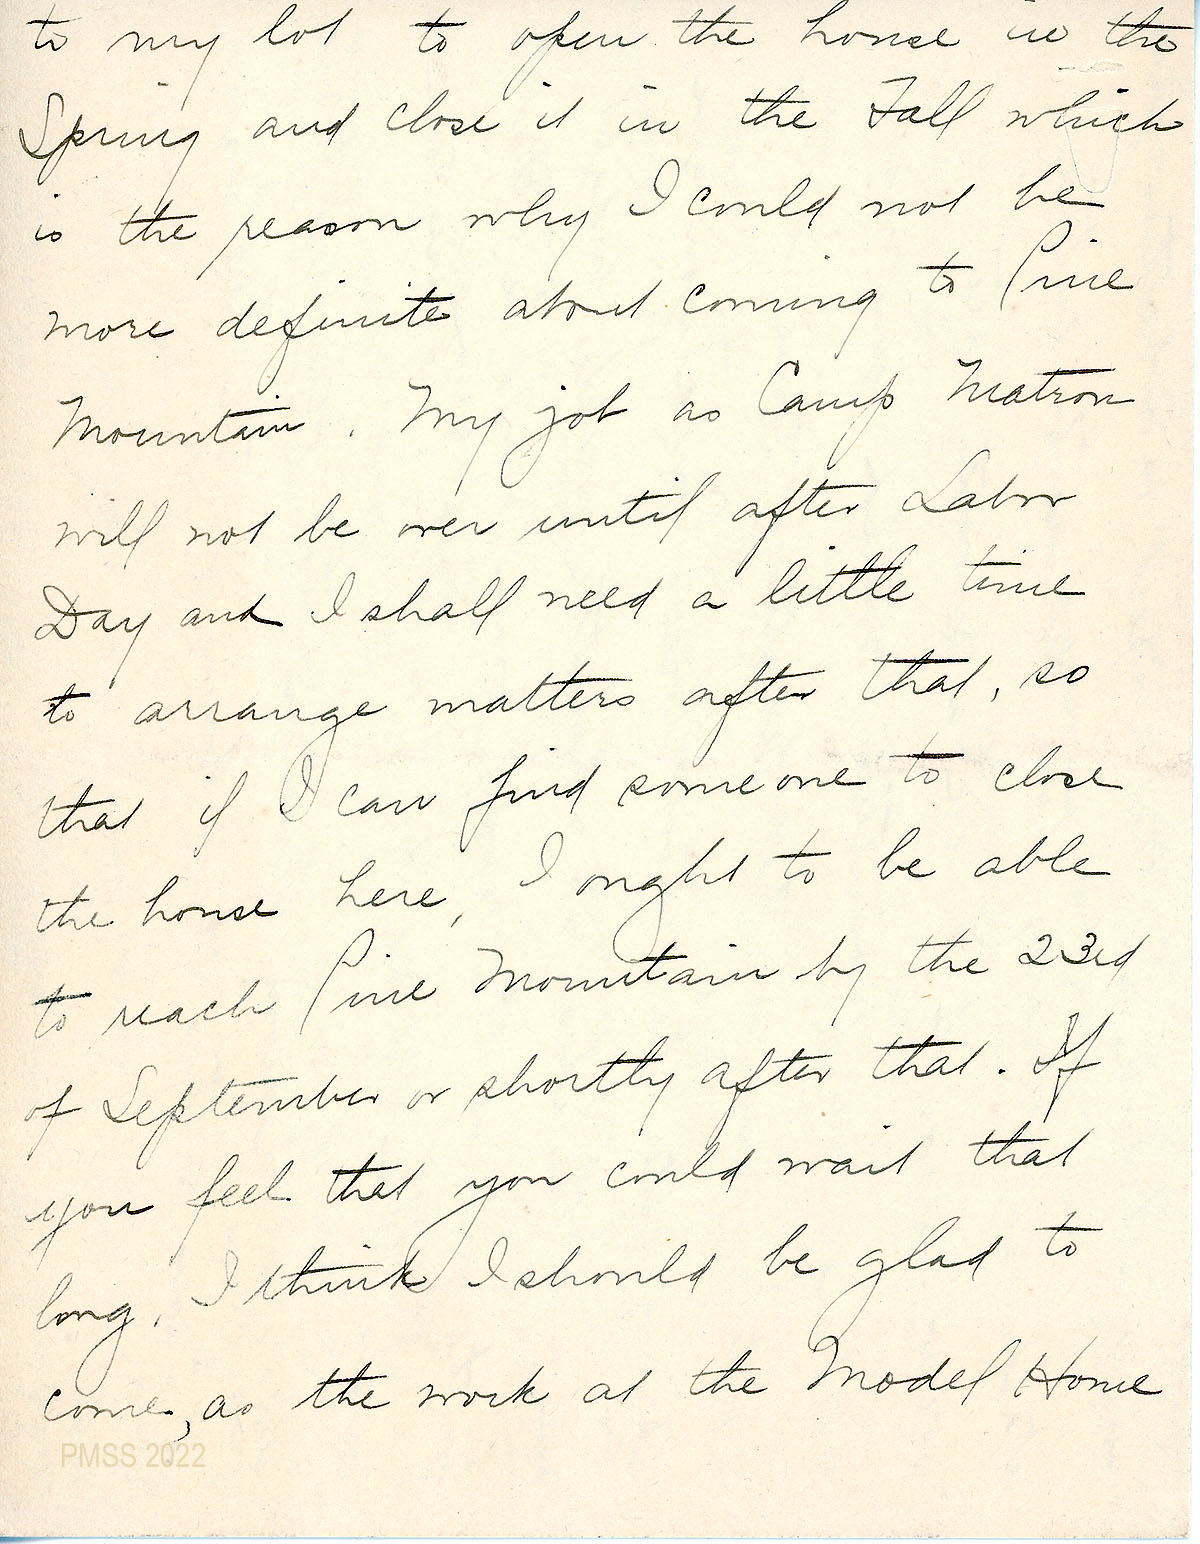 to my lot to open the house in the
Spring and close it in the Fall which
is the reason why I could not be
more definite about coming to Pine
Mountain. My job as Camp Matron
will not be over until after Labor
Day and I shall need a little time
to arrange matters after that, so
that if I can find someone to close
the house here, I ought to be able
to reach Pine Mountain by the 23rd
of September or shortly after that. If
you feel that you could wait that
long, I think I should be glad to
come, as the work at the Model Home
PMSS 2022